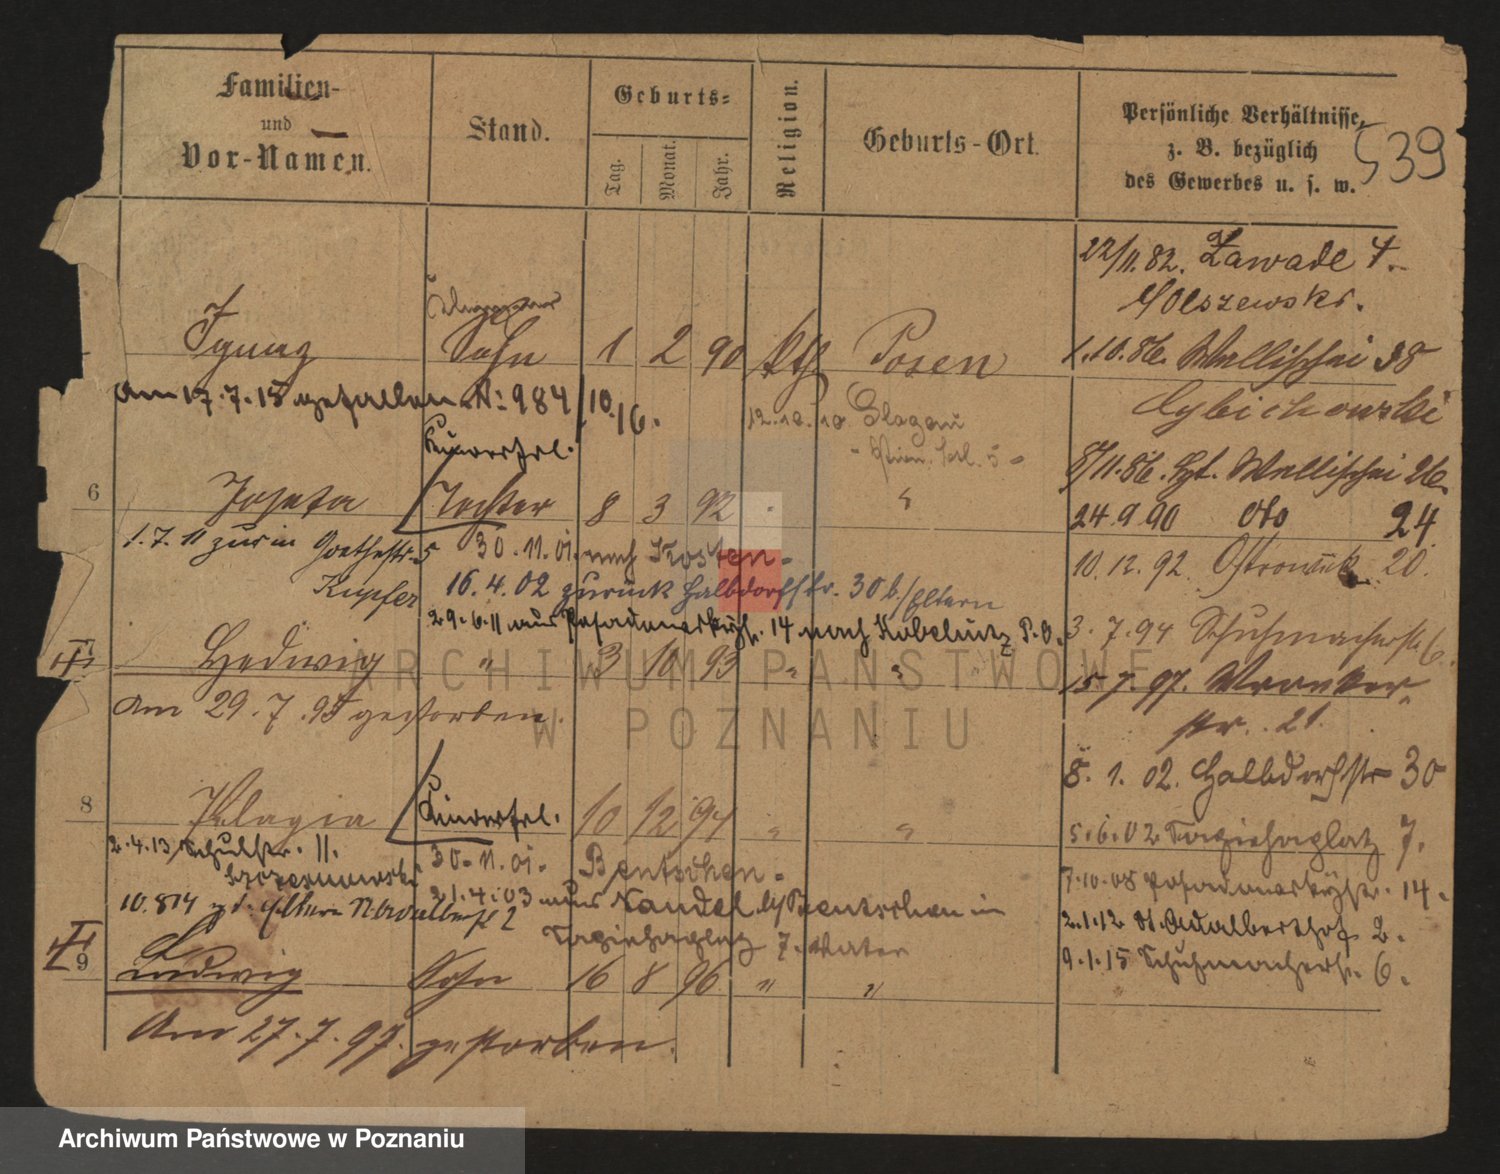 Familien-
und
Vor-Namen.
Stand.
Geburts-
Tag.
Monat.
Jahr.
Religion.
Geburts-Ort.
Persönliche Verhältnisse,
z. B. bezüglich
des Gewerbes u. s. w.
539
22/11.82. Zawade 4.
Olszewski.
Ignaz Sohn 1 2 90 Kth Posen
1.10.86. Wallischei 38
Cybichowski
am 17.7.15 gefallen N: 984/10.16.
12.10.10 Glogau
8/11.86. Wallischei 26
6 Josefa Tochter 8 3 92 "
24.9.90 dto 24
1.7.11 zur in Goethestr. 5
Kupfer
30.11.01. nach Kosten
10.12.92. Ostrowek 20.
16.4.02 zurück Halbdorfstr. 30 b/Eltern
29.6.11 aus 14 nach Kobelnitz P.O.
3.7.94 Schuhmacherstr. 6
7 Hedwig " 3 10 93 " "
15.7.97. Wronker-
str. 21.
Am 29.7.95 gestorben.
8.1.02. Halbdorfstr 30
8 Pelagia 10 12 94 " "
5.6.02 Sapiehaplatz 7.
2.4.13 Schulstr. 11.
30.11.01. Bentschen
7.10.08 14.
10.8.14 z. d. Eltern
21.4.03 aus Nandel b/Bentschen in
Sapiehaplatz 7. Vater
2.1.12 St. Adalberthof 2.
9.1.15 Schuhmacherstr. 6.
9 Ludwig Sohn 16 8 96 " "
Am 27.7.97. gestorben.
ARCHIWUM PAŃSTWOWE
W POZNANIU
Archiwum Państwowe w Poznaniu